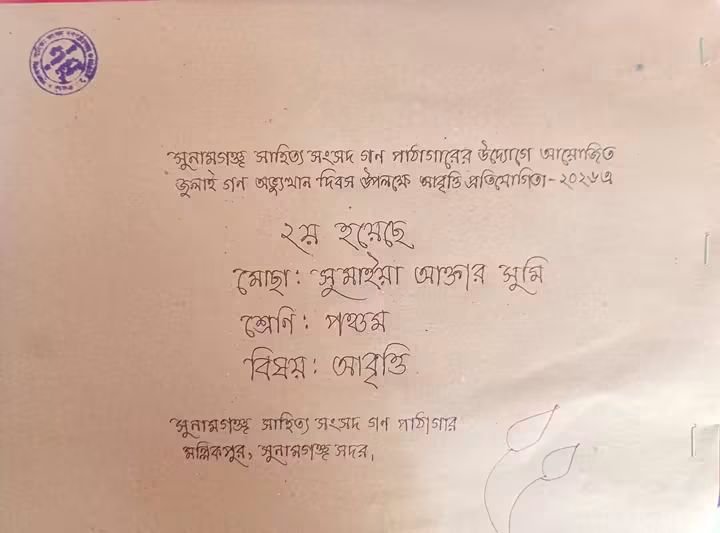 সুনামগঞ্জ সাহিত্য সংসদ গন পাঠাগারের উদ্যোগে আয়োজিত
জুলাই গন অভ্যুত্থান দিবস উপলক্ষে আবৃত্তি প্রতিযোগিতা-২০২৬এ
২য় হয়েছে
মোছা: সুমাইয়া আক্তার সুমি
শ্রেণি: পঞ্চম
বিষয়: আবৃত্তি
সুনামগঞ্জ সাহিত্য সংসদ গন পাঠাগার
মল্লিকপুর, সুনামগঞ্জ সদর,